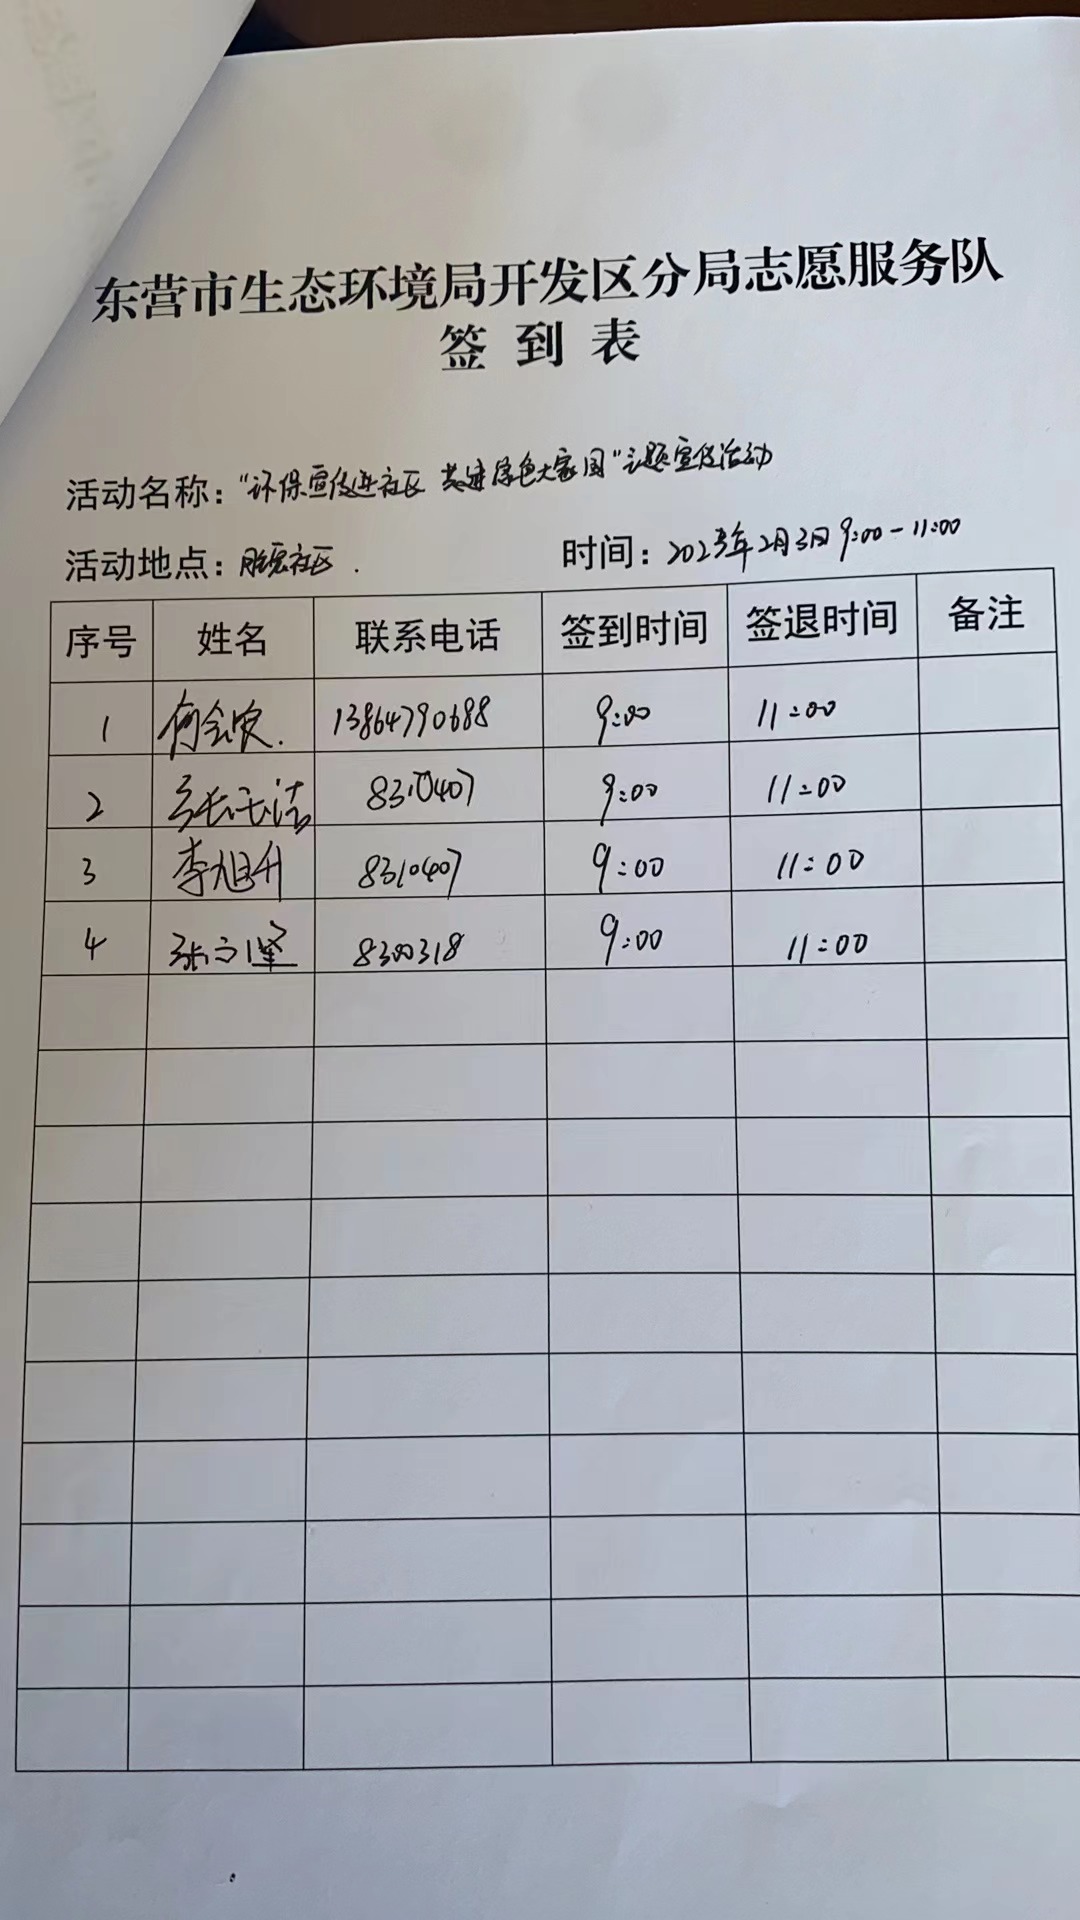 东营市生态环境局开发区分局志愿服务队
签到表
活动名称："环保宣传进社区 共建绿色大家园"主题宣传活动
活动地点：社区. 时间：2023年2月3日 9:00-11:00
序号 姓名 联系电话 签到时间 签退时间 备注
1 13864790688 9:00 11:00
2 8310407 9:00 11:00
3 李旭升 8310407 9:00 11:00
4 8300318 9:00 11:00